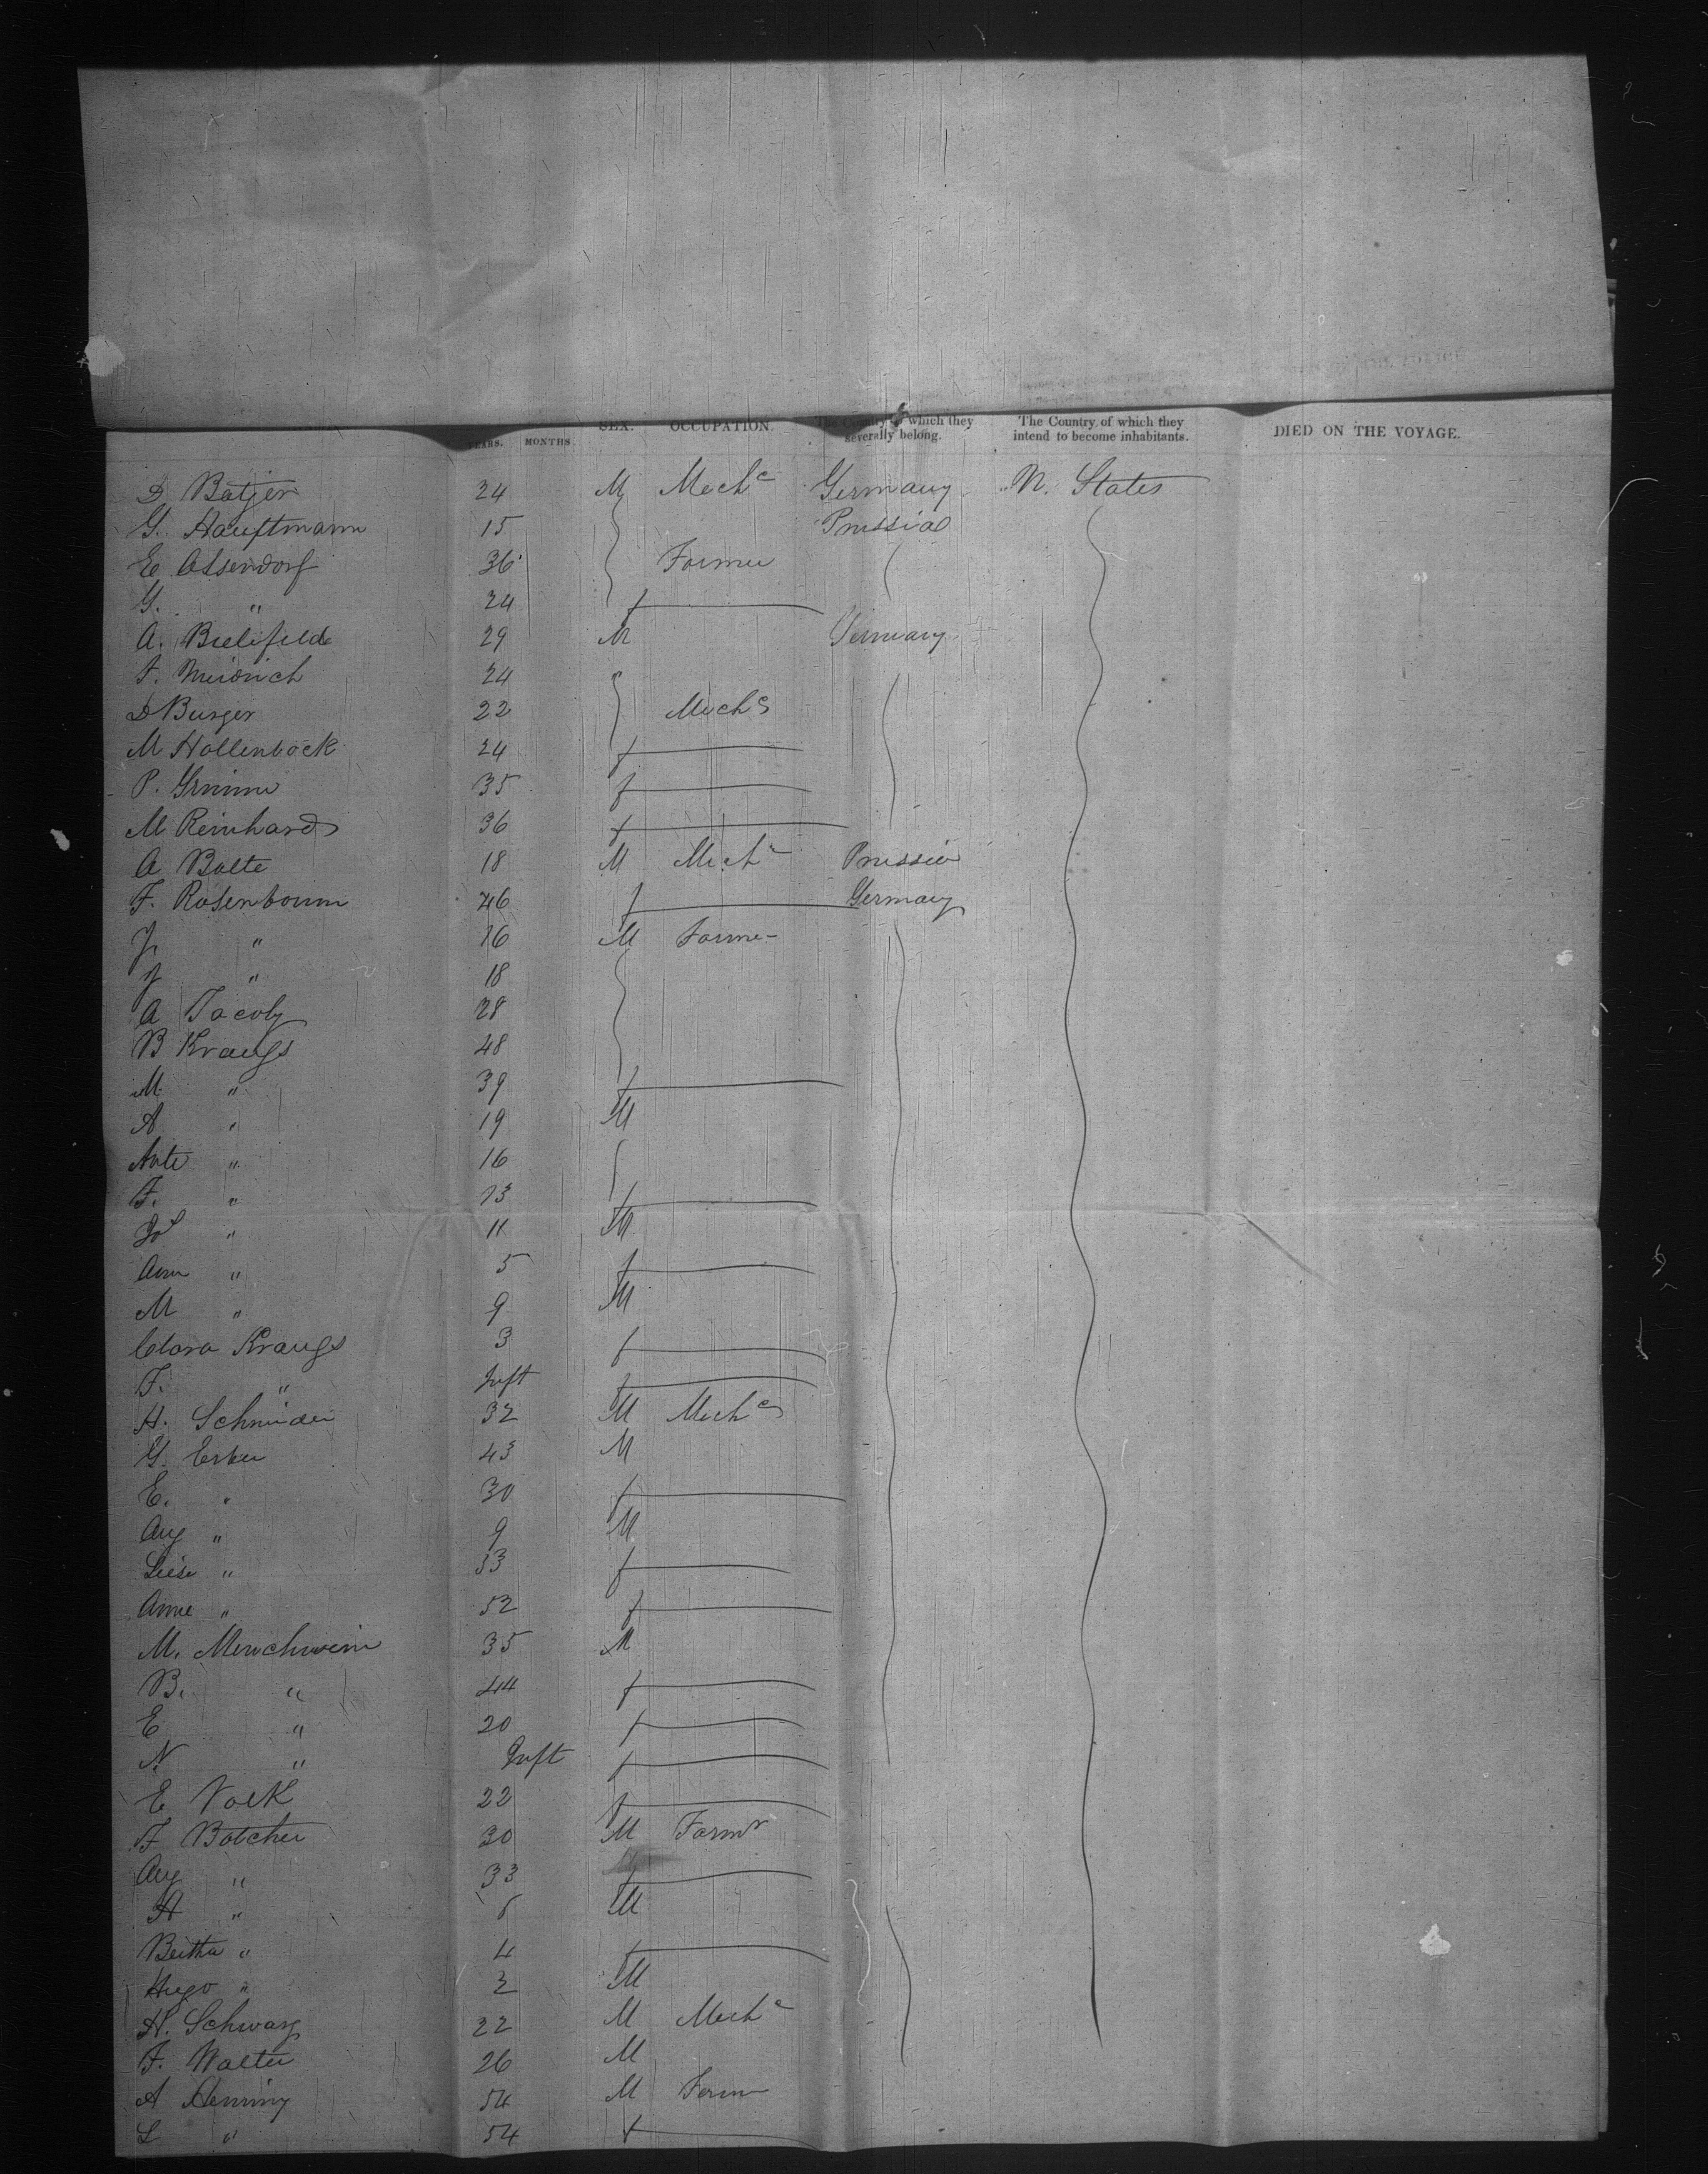 YEARS. MONTHS SEX. OCCUPATION. The Country of which they severally belong. The Country of which they intend to become inhabitants. DIED ON THE VOYAGE.
D Batjer 24 M Mech^c Germany U. States
G. Hauftmann 15 Prussia
E Ossendorf 36 Farmer
G. " 24 f
A. Bielifeld 29 M Germany
F. 24
D Burger 22 Mech^c
M Hollenbock 24 f
P. Grimm 35 f
M Reinhard 36 f
A Bolte 18 M Mech^c Prussia
F. Rosenboum 46 f Germany
J. " 16 M Farmer
J " 18
A Jacoby 28
B Kraugs 48
M. " 39 f
A " 19 M
Ante " 16
F. " 13 f
Jos " 11 M
Ann " 5 f
M " 9 M
Clara Kraugs 3 f
F. " Inft f
H. Schnieder 32 M Mech^c
G. Erker 43 M
E. " 30 f
Aug " 9 M
Liese " 33 f
Anne " 52 f
M. Menchwein 35 M
B. " 44 f
E " 20 f
N. " Inft f
E Volk 22 f
F Botcher 30 M Farm^r
Aug " 33 f
H " 6 M
Bertha " 4 f
Hugo " 2 M
H. Schwarz 22 M Mech^c
F. Walter 26 M
A Henning 54 M Farm
L " 54 f